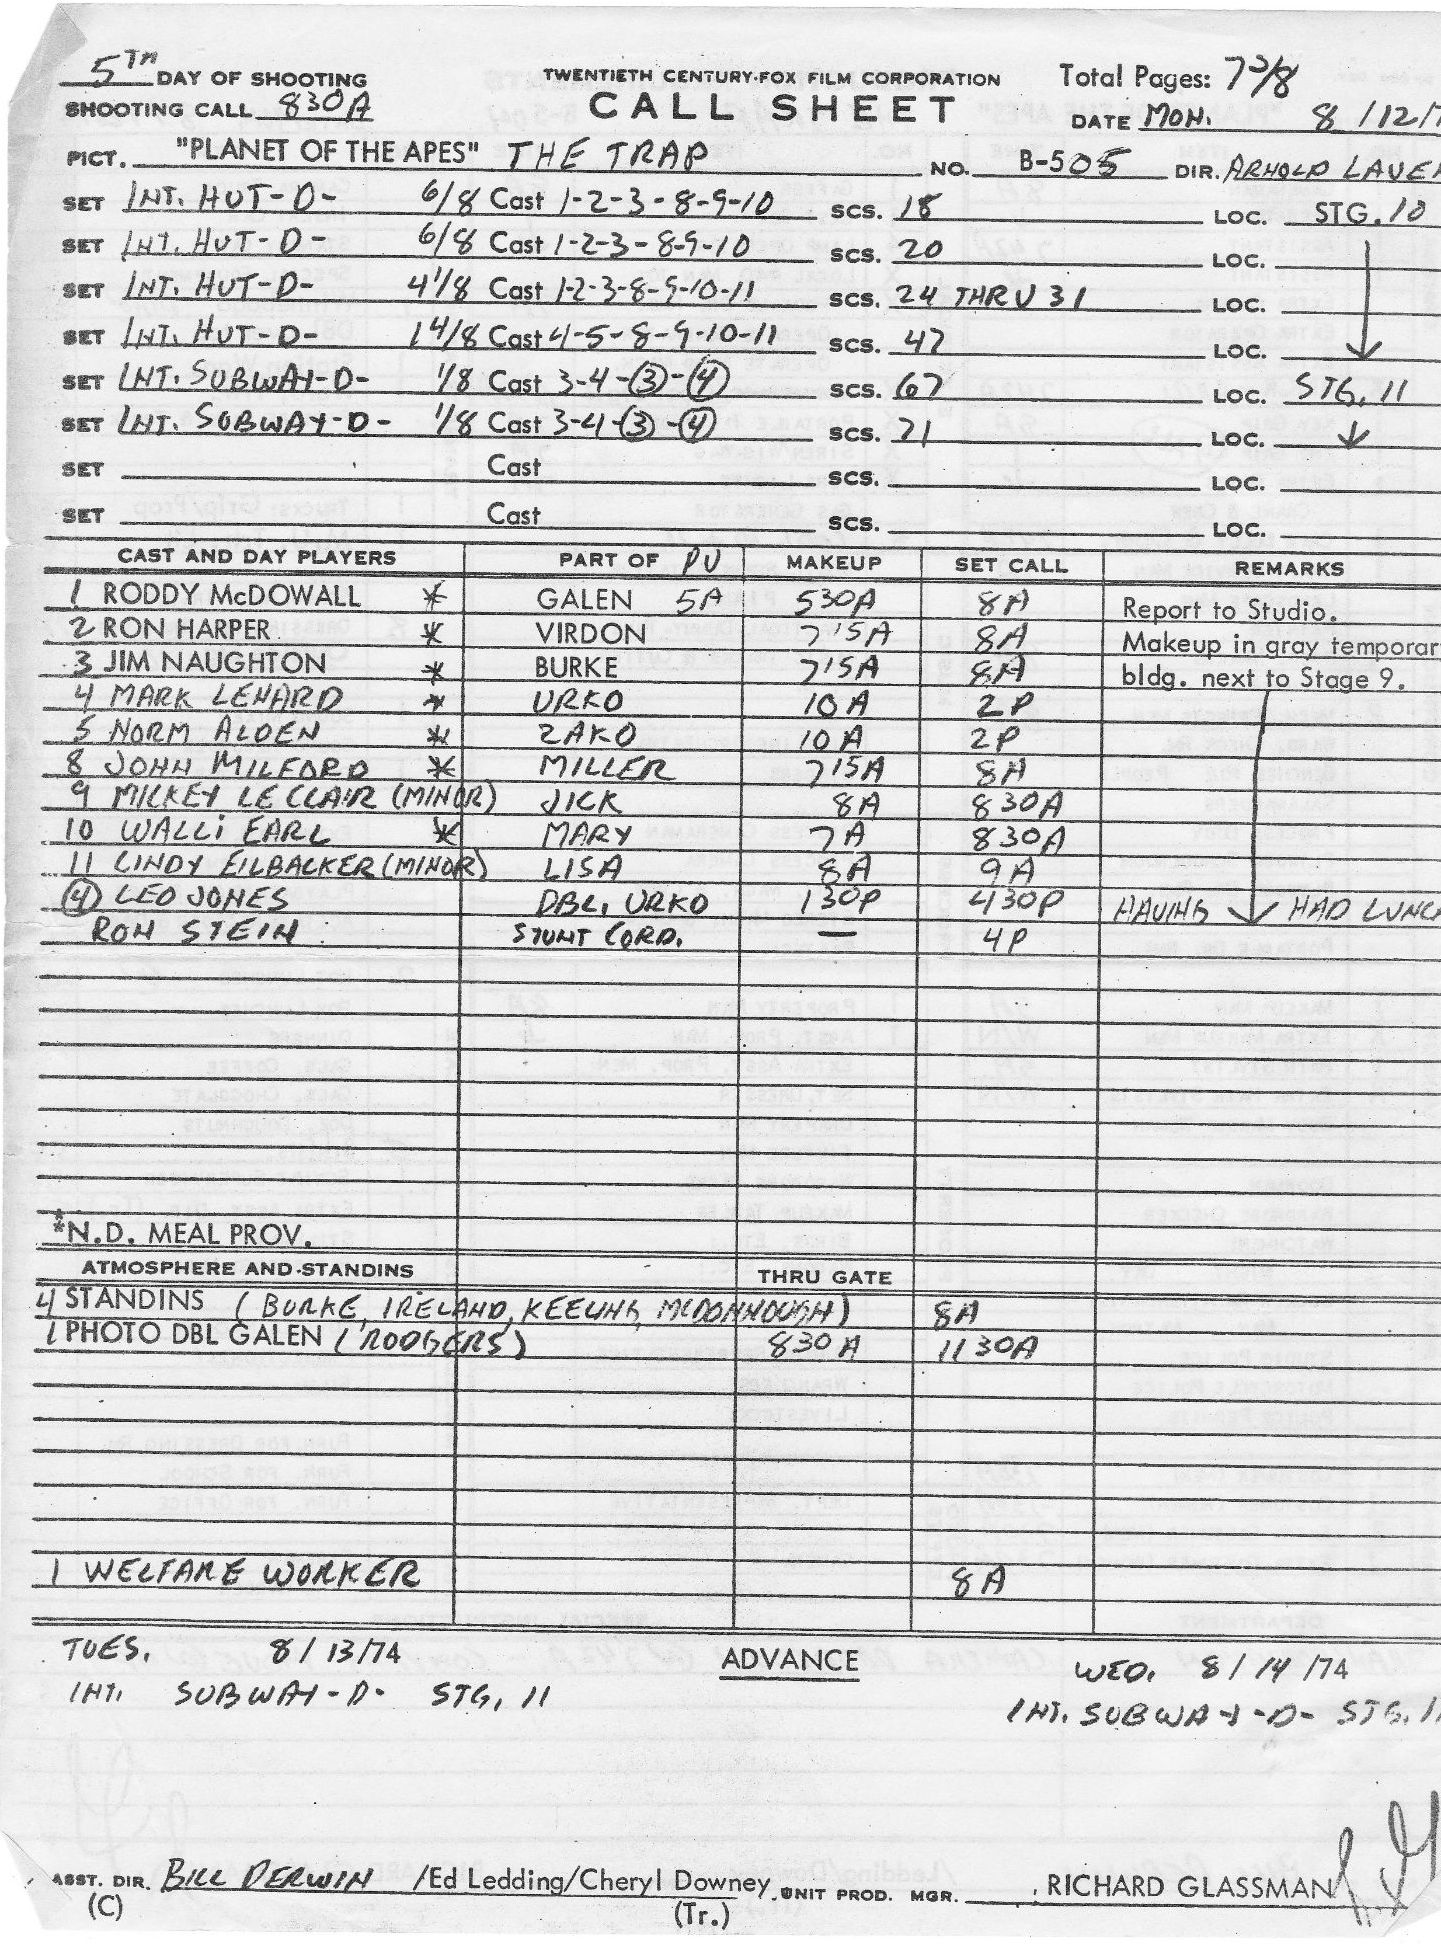 5TH DAY OF SHOOTING TWENTIETH CENTURY-FOX FILM CORPORATION Total Pages: 7 3/8
SHOOTING CALL 830A CALL SHEET DATE MON. 8/12/
PICT. "PLANET OF THE APES" THE TRAP NO. B-505 DIR. ARNOLD LAVE
SET INT. HUT-D- 6/8 Cast 1-2-3-8-9-10 SCS. 18 LOC. STG. 10
SET INT. HUT-D- 6/8 Cast 1-2-3-8-9-10 SCS. 20 LOC.
SET INT. HUT-D- 4 1/8 Cast 1-2-3-8-9-10-11 SCS. 24 THRU 31 LOC.
SET INT. HUT-D- 1 4/8 Cast 4-5-8-9-10-11 SCS. 47 LOC.
SET INT. SUBWAY-D- 1/8 Cast 3-4-3-4 SCS. 67 LOC. STG. 11
SET INT. SUBWAY-D- 1/8 Cast 3-4-3-4 SCS. 71 LOC.
SET Cast SCS. LOC.
SET Cast SCS. LOC.
CAST AND DAY PLAYERS PART OF PU MAKEUP SET CALL REMARKS
1 RODDY McDOWALL * GALEN 5A 530A 8A Report to Studio.
2 RON HARPER * VIRDON 715A 8A Makeup in gray temporar
3 JIM NAUGHTON * BURKE 715A 8A bldg. next to Stage 9.
4 MARK LENARD * URKO 10A 2P
5 NORM ALDEN * ZAKO 10A 2P
8 JOHN MILFORD * MILLER 715A 8A
9 MICKEY LE CLAIR (MINOR) JICK 8A 830A
10 WALLI EARL * MARY 7A 830A
11 CINDY EILBACKER (MINOR) LISA 8A 9A
4 LEO JONES DBL. URKO 130P 430P HAVING HAD LUNC
RON STEIN STUNT CORD. — 4P
*N.D. MEAL PROV.
ATMOSPHERE AND STANDINS THRU GATE
4 STANDINS (BURKE, IRELAND, KEELING, MCDONNOUGH) 8A
1 PHOTO DBL GALEN (RODGERS) 830A 1130A
1 WELFARE WORKER 8A
TUES. 8/13/74 ADVANCE WED. 8/14/74
INT. SUBWAY-D- STG. 11 INT. SUBWAY-D- STG. 11
ASST. DIR. BILL DERWIN /Ed Ledding/Cheryl Downey UNIT PROD. MGR. RICHARD GLASSMAN
(C) (Tr.)